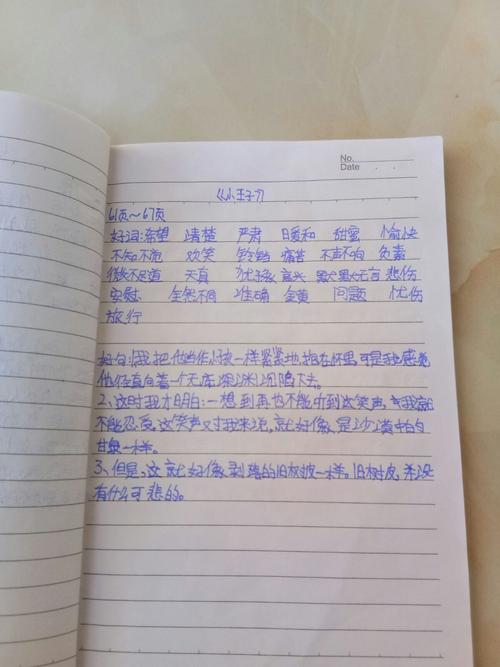 No.
Date
《小王子》
61页~67页
好词:希望 清楚 严肃 暖和 甜蜜 愉快
不知不觉 欢笑 铃铛 痛苦 不声不响
微不足道 天真 犹豫 高兴 默默无言 悲伤
安慰 全然不同 准确 金黄 问题 忧伤
旅行
好句:我把他当作小孩一样紧紧地抱在怀里,可是我感觉
他径直向着一个无底深渊沉陷下去。
2、这时我才明白:一想到再也不能听到这笑声,我就
不能忍受。这笑声对我来说,就好像是沙漠中的
甘泉一样。
3、但是,这就好像剥落的旧树皮一样。旧树皮,并没
有什么可悲的。